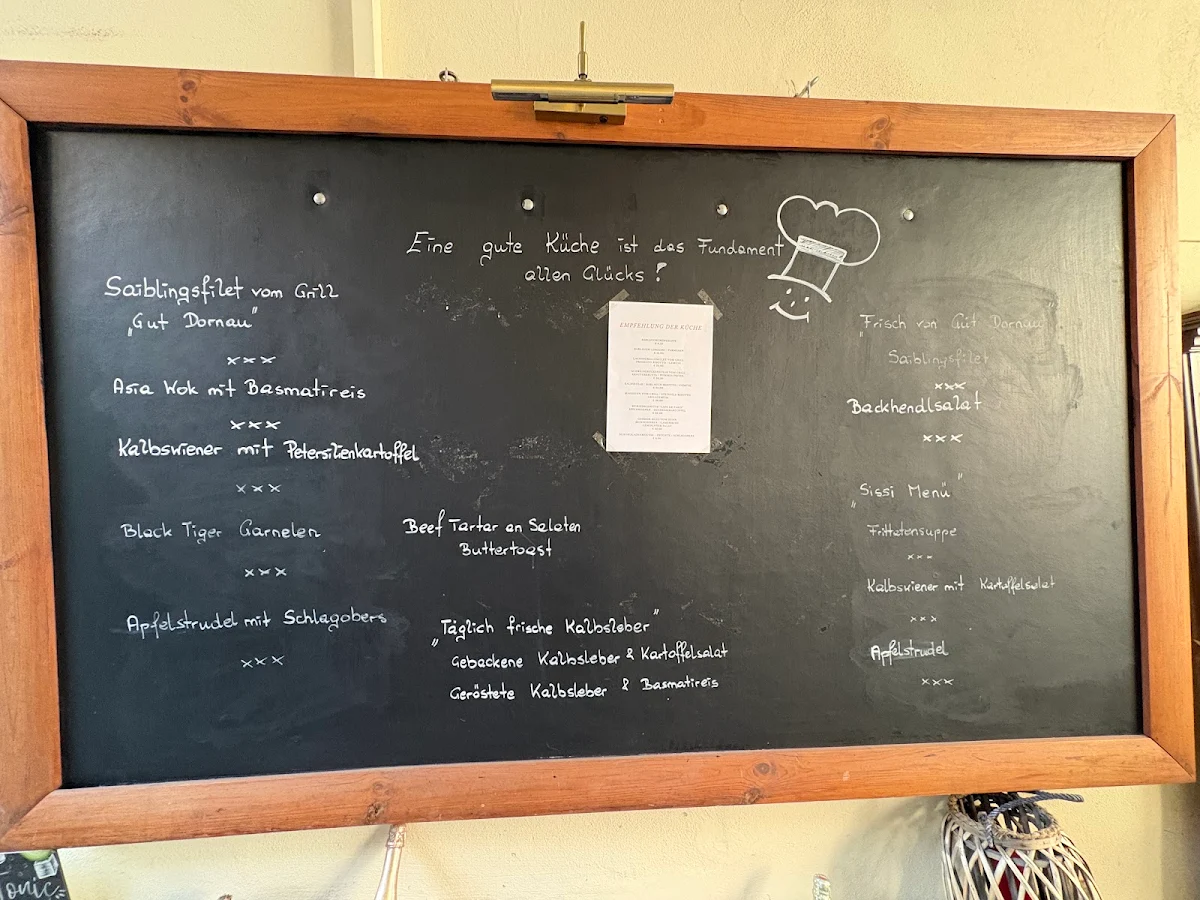 Eine gute Küche ist das Fundament
allen Glücks!
Saiblingsfilet vom Grill
„Gut Dornau"
xxx
Asia Wok mit Basmatireis
xxx
Kalbswiener mit Petersilienkartoffel
xxx
Black Tiger Garnelen
xxx
Apfelstrudel mit Schlagobers
xxx
EMPFEHLUNG DER KÜCHE
Beef Tartar an Salaten
Buttertoast
„Täglich frische Kalbsleber"
Gebackene Kalbsleber & Kartoffelsalat
Geröstete Kalbsleber & Basmatireis
„Frisch von Gut Dornau"
Saiblingsfilet
xxx
Backhendlsalat
xxx
„Sissi Menü"
Frittatensuppe
xxx
Kalbswiener mit Kartoffelsalat
xxx
Apfelstrudel
xxx
onic